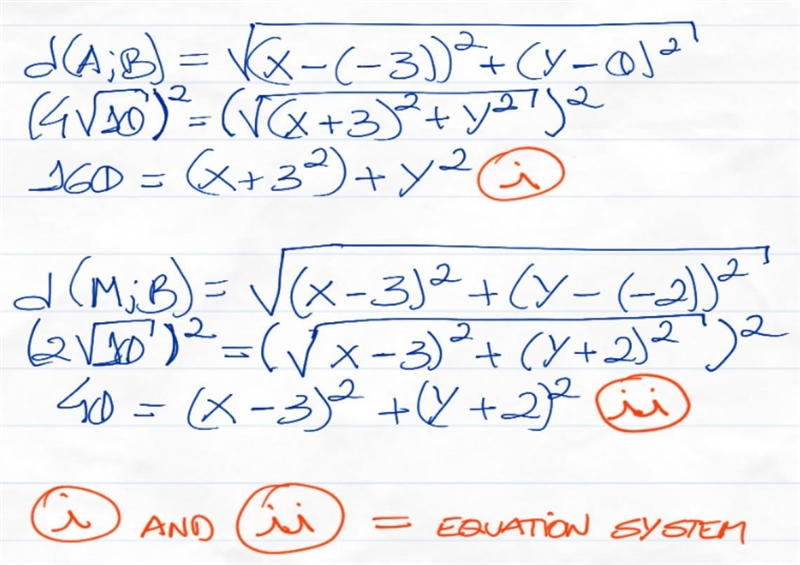 d(A;B) = √(x-(-3))² + (y-0)²
(4√10)² = (√(x+3)² + y²)²
160 = (x+3²) + y² i
d(M;B) = √(x-3)² + (y-(-2))²
(2√10)² = (√x-3)² + (y+2)²)²
40 = (x-3)² + (y+2)² ii
i AND ii = EQUATION SYSTEM